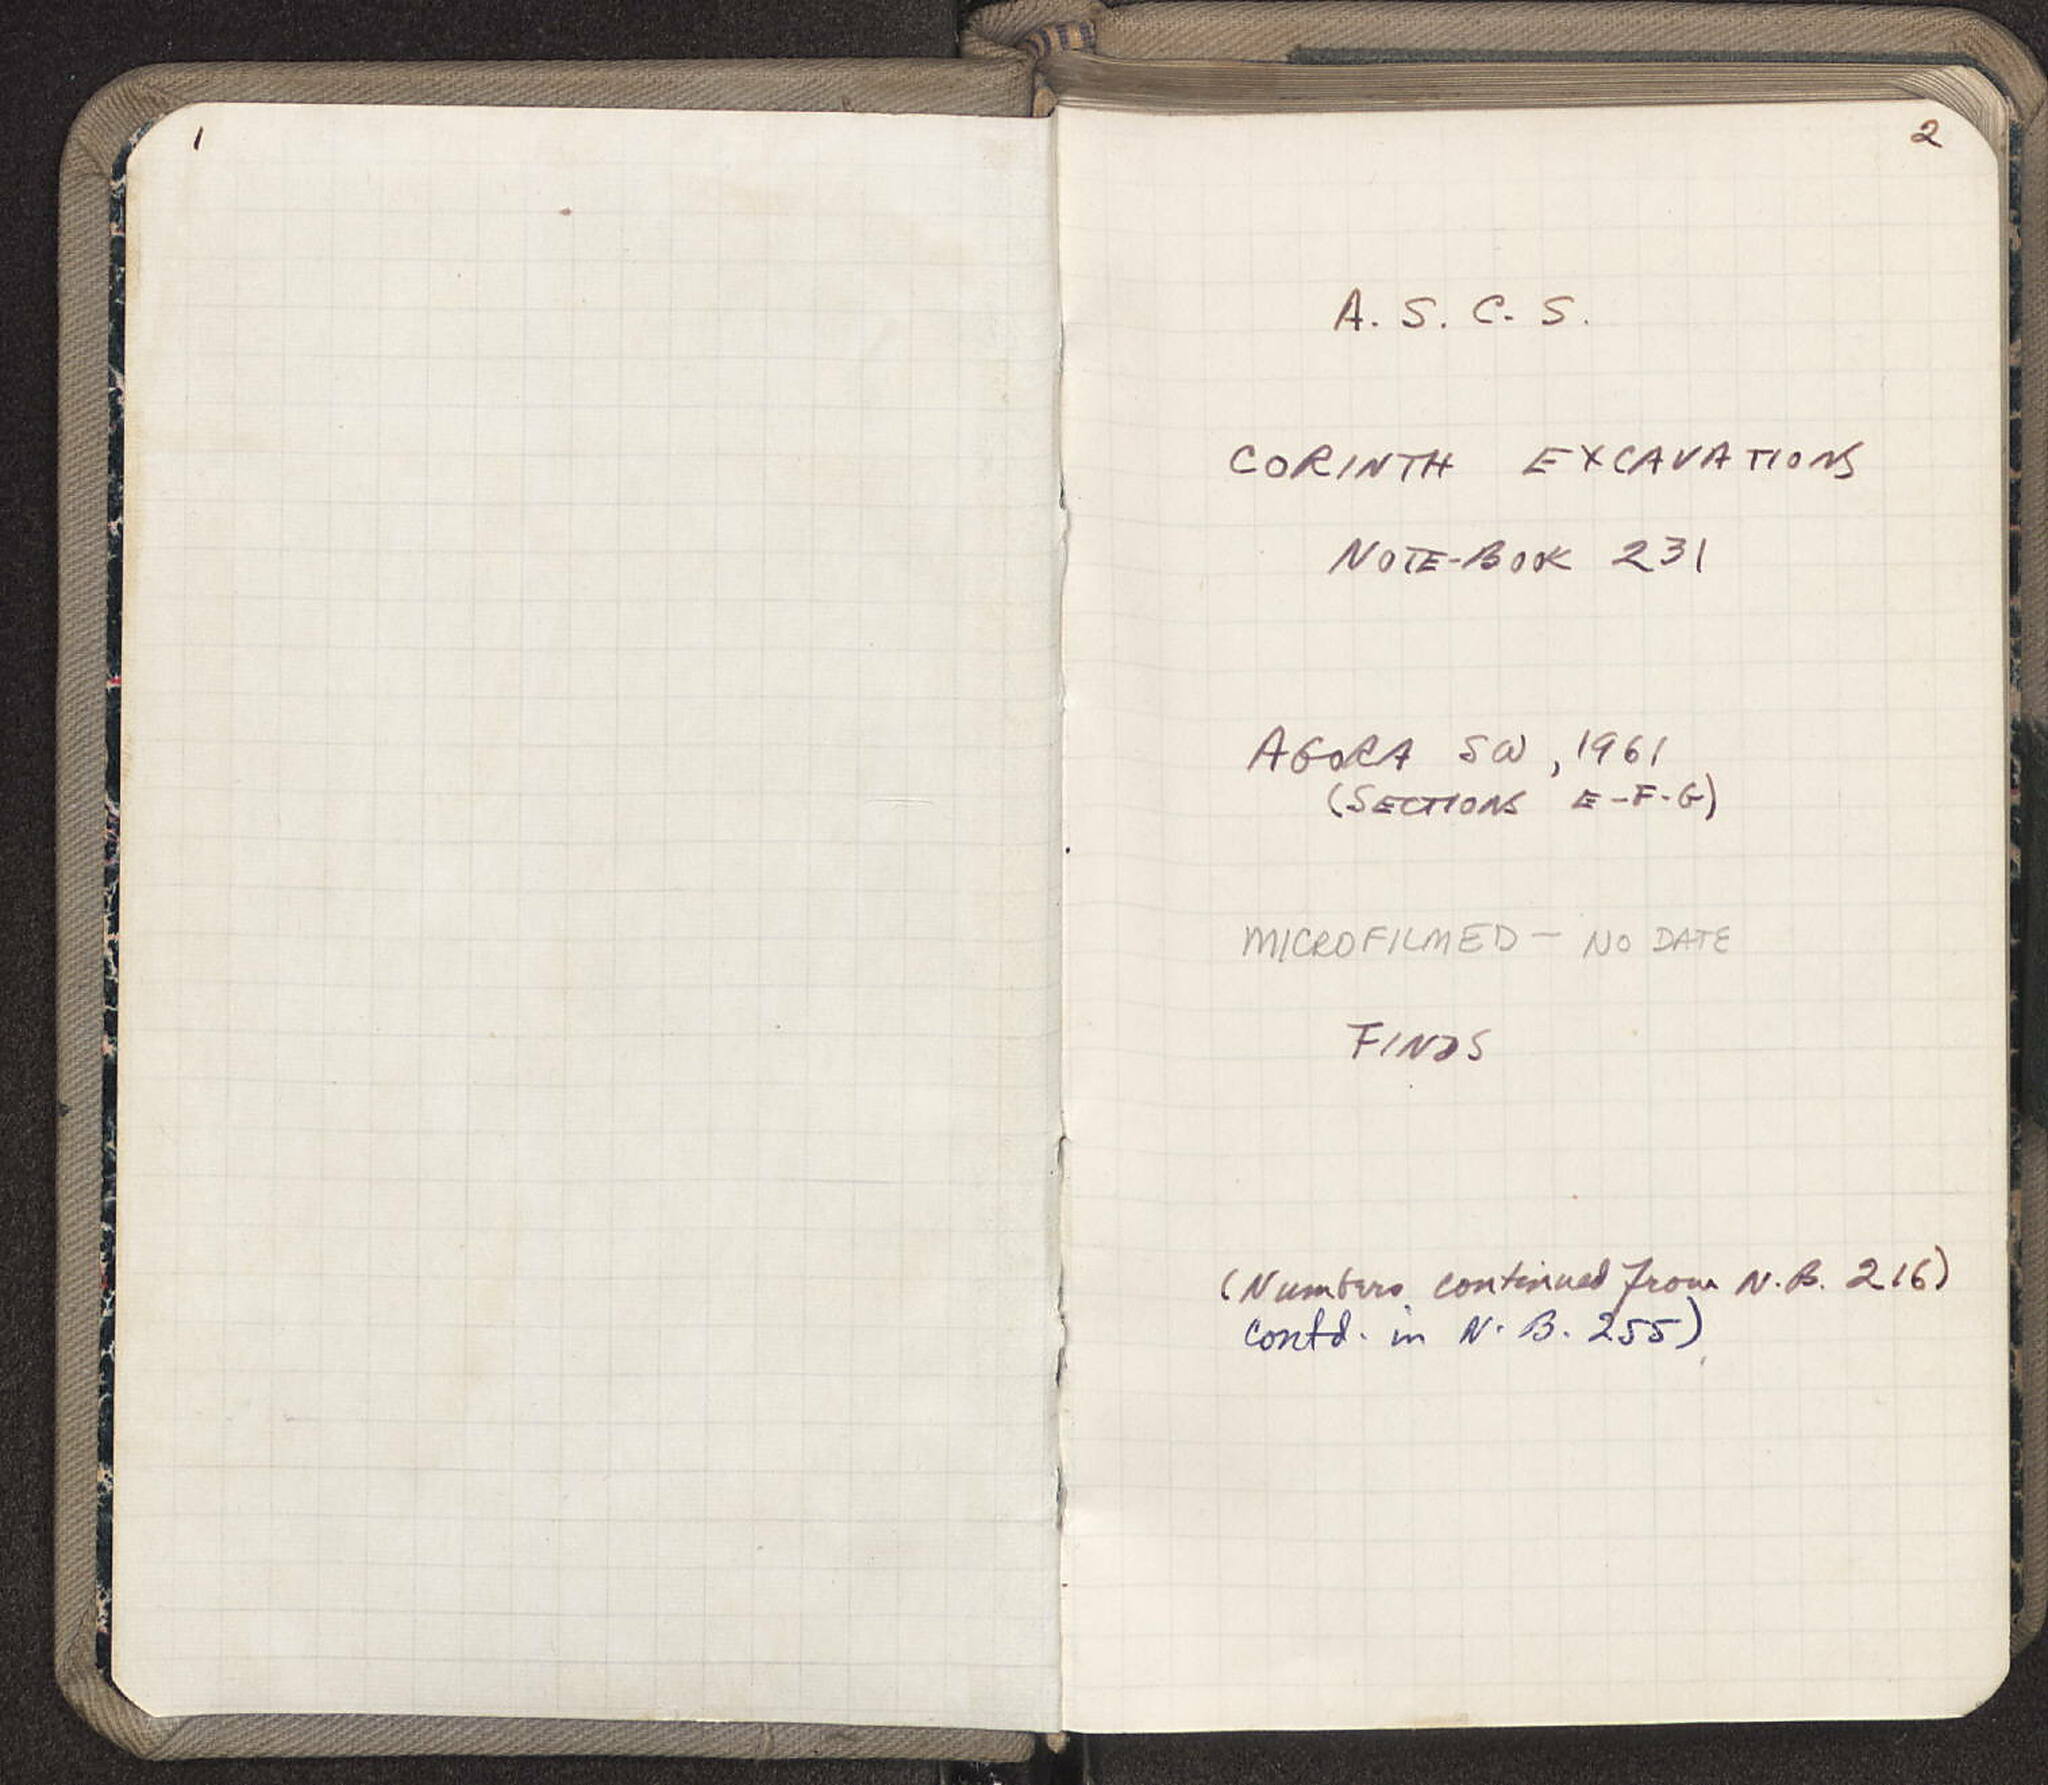 1
2
A. S. C. S.
CORINTH EXCAVATIONS
NOTE-BOOK 231
AGORA SW, 1961
(SECTIONS E-F-G)
MICROFILMED — NO DATE
FINDS
(Numbers continued from N.B. 216)
contd. in N. B. 255)